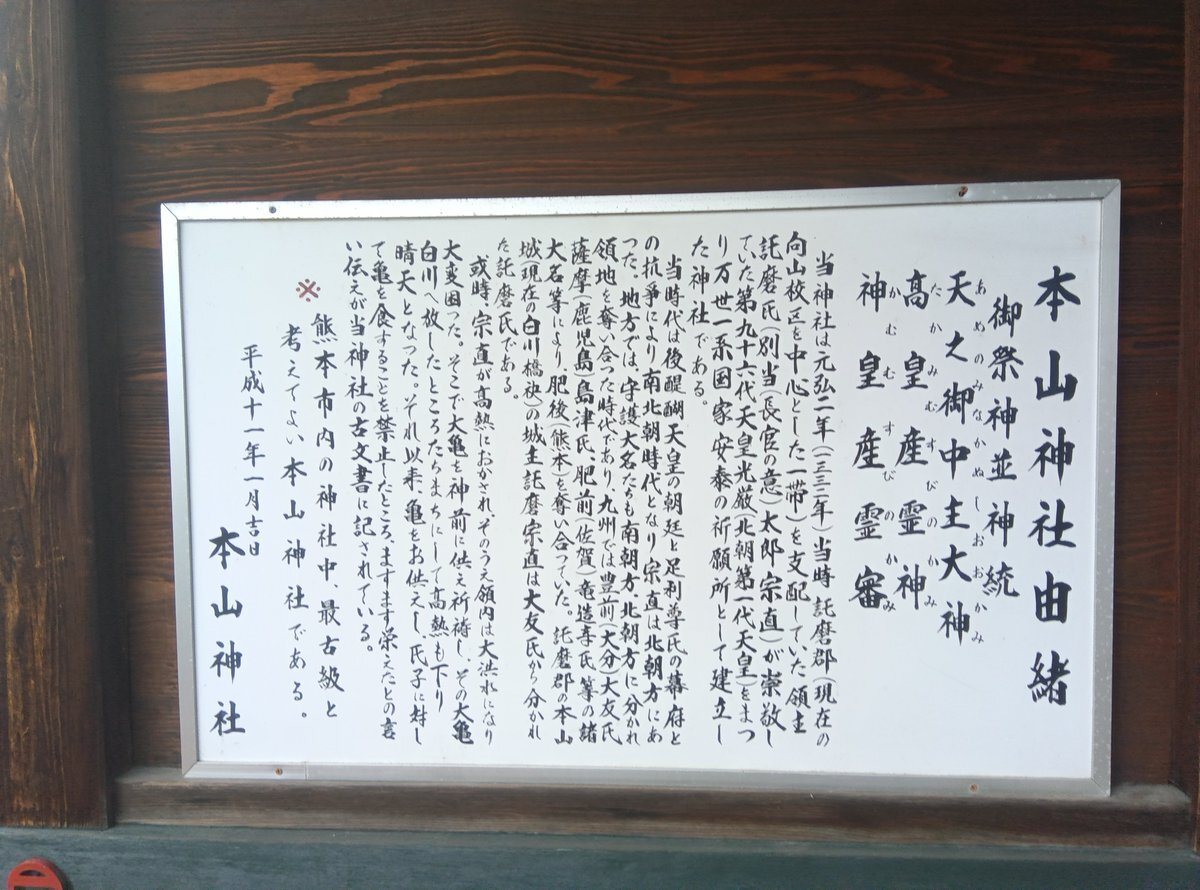 本山神社由緒
御祭神並神統
天之御中主大神
あめのみなかぬしおおかみ
高皇産霊神
たかみむすびのかみ
神皇産霊審
かむむすびのかみ
当神社は元弘二年(一三三二年)当時託磨郡(現在の
向山校区を中心とした一帯)を支配していた領主
託磨氏(別当(長官の意)太郎宗直)が崇敬し
ていた第九十六代天皇光厳(北朝第一代天皇)をまつ
り万世一系国家安泰の祈願所として建立し
た神社である。
当時代は後醍醐天皇の朝廷と足利尊氏の幕府と
の抗争により南北朝時代となり宗直は北朝方にあ
った、地方では、守護大名たちも南朝方、北朝方に分かれ
領地を奪い合った時代であり、九州では豊前(大分)大友氏
薩摩(鹿児島)島津氏、肥前(佐賀)竜造寺氏等の諸
大名等により、肥後(熊本)を奪い合っていた。託磨郡の本山
城(現在の白川橋袂)の城主託磨宗直は大友氏から分かれ
た託磨氏である。
或時、宗直が高熱におかされ、そのうえ領内は大洪水になり
大変困った。そこで大亀を神前に供え祈祷し、その大亀
白川へ放したところたちまちにして高熱も下り
晴天となった。それ以来、亀をお供えし、氏子に対し
て亀を食することを禁止したところ、ますます栄えたとの言
い伝えが当神社の古文書に記されている。
※熊本市内の神社中、最古級と
考えてよい本山神社である。
平成十一年一月吉日
本山神社